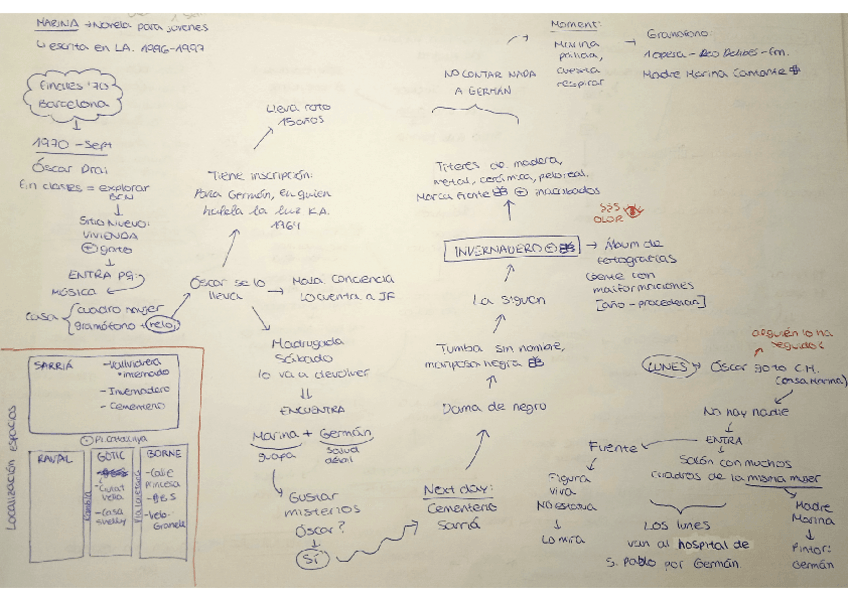 MARINA → Novela para jóvenes
↳ escrita en LA. 1996-1997
Finales '70
Barcelona
1970 - Sept
Óscar Drai
Fin clases = explorar
BCN
Sitio Nuevo:
VIVIENDA
+ gato
ENTRA PQ:
MÚSICA
Casa
cuadro mujer
gramófono + reloj
Óscar se lo
lleva
Tiene inscripción:
Para Germán, en quien
habla la luz K.A.
1964
Lleva roto
15 años
Mala conciencia
Lo cuenta a JF
Madrugada
Sábado
lo va a devolver
ENCUENTRA
Marina + Germán
guapa
salud
débil
Gustar
misterios
Óscar?
Sí
Next day:
Cementerio
Sarriá
Dama de negro
Tumba sin nombre,
mariposa negra
La siguen
INVERNADERO
SSS
OLOR
→ Álbum de
fotografías
Gente con
malformaciones
[año - procedencia]
Títeres de madera,
metal, cerámica, pelo real.
Marca frente + inacabados
NO CONTAR NADA
A GERMÁN
Moment:
Marina
cuesta
respirar
Gramófono:
1 ópera - Leo Delibes - fin.
Madre Marina Cantante
LUNES
Óscar 9:00 C.M.
(casa Marina)
alguien lo ha
seguido?
No hay nadie
ENTRA
Salón con muchos
cuadros de la misma mujer
Madre
Marina
Pintor:
Germán
Fuente
Figura
viva
NO estatua
Lo mira
LOS lunes
van al hospital de
S. Pablo por Germán.
Localización espacios
SARRIÁ
- Vallvidrera
• internado
- Invernadero
- Cementerio
Pl Catalunya
RAVAL
GÒTIC
Vella
- Casa
Shelly
Vía Laietana
BORNE
- Calle
Princesa
- Velo-
Granell